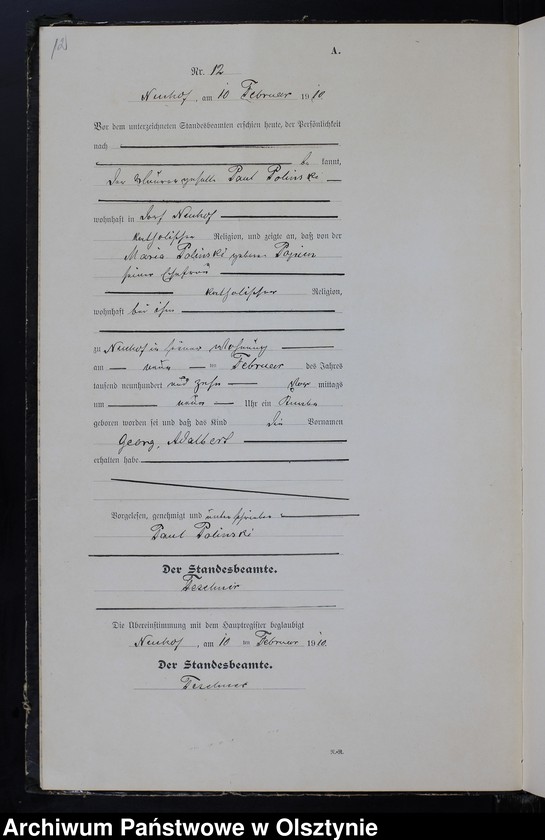 12
A.
Nr. 12
Neuhof, am 10 Februar 1910
Vor dem unterzeichneten Standesbeamten erschien heute, der Persönlichkeit
nach
be kannt,
der Maurergeselle Paul Polinski
wohnhaft in Dorf Neuhof
katholischer Religion, und zeigte an, daß von der
Maria Polinski geborene
seiner Ehefrau
katholischer Religion,
wohnhaft bei ihm
zu Neuhof in seiner Wohnung
am neun ten Februar des Jahres
tausend neunhundert und zehn Vor mittags
um neun Uhr ein Knabe
geboren worden sei und daß das Kind die Vornamen
Georg, Adalbert
erhalten habe.
Vorgelesen, genehmigt und unterschrieben
Paul Polinski
Der Standesbeamte.
Die Übereinstimmung mit dem Hauptregister beglaubigt
Neuhof, am 10 ten Februar 1910.
Der Standesbeamte.
Archiwum Państwowe w Olsztynie